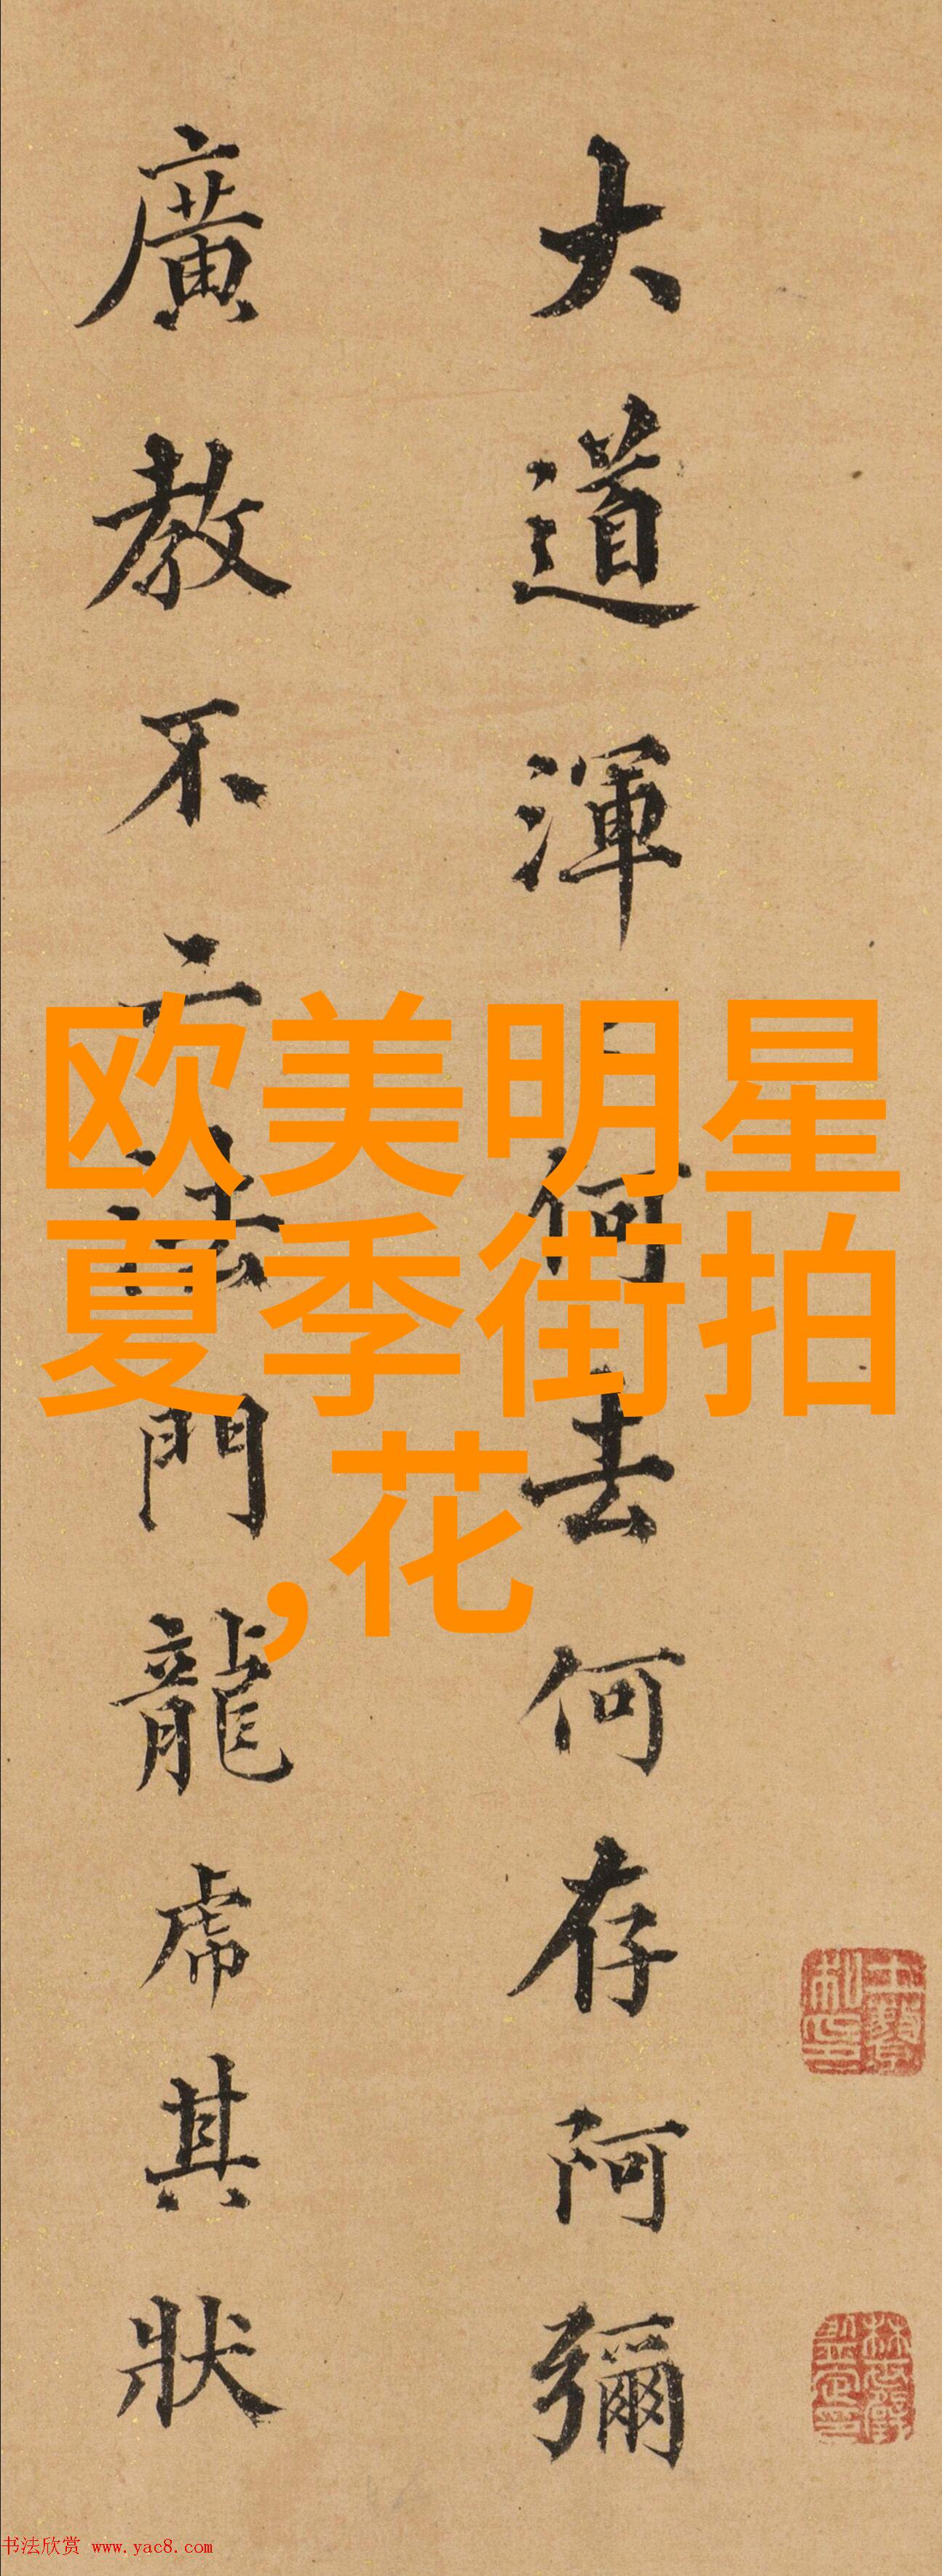 大道渾一何去何存阿彌
廣教不二法門龍虎其狀
欧美明星
夏季街拍
,花
书法欣赏 www.yac8.com